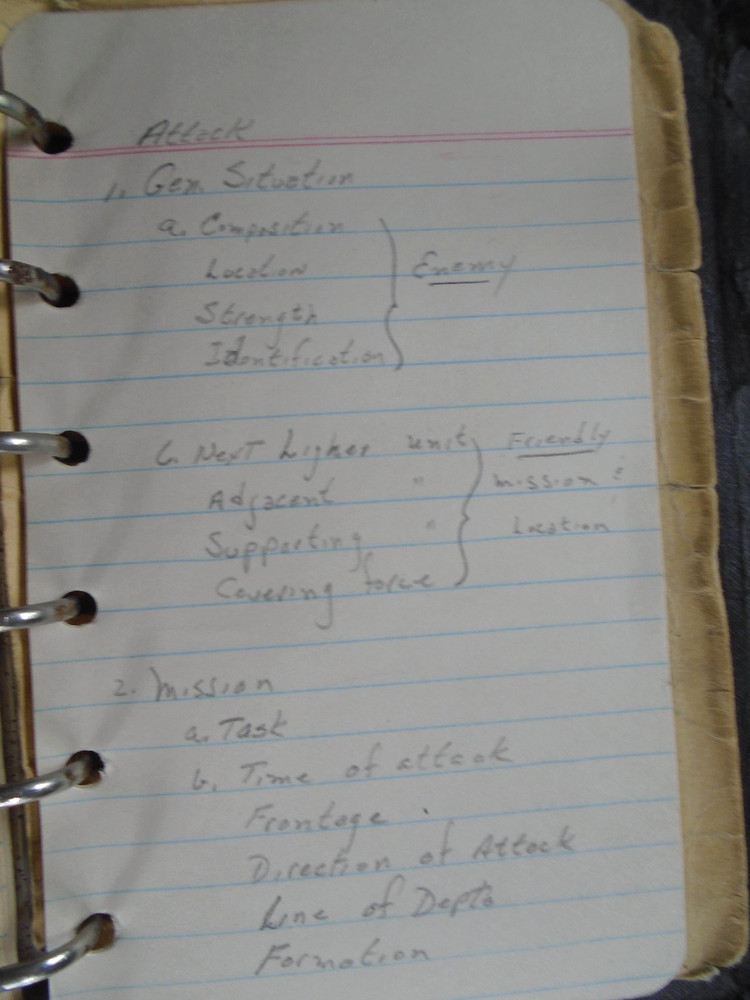 Attack
1. Gen. Situation
a. Composition
Location
Strength
Identification
Enemy
b. Next Higher unit
Adjacent "
Supporting "
Covering force
Friendly
mission &
Location
2. Mission
a. Task
b. Time of attack
Frontage
Direction of Attack
Line of Dept
Formation